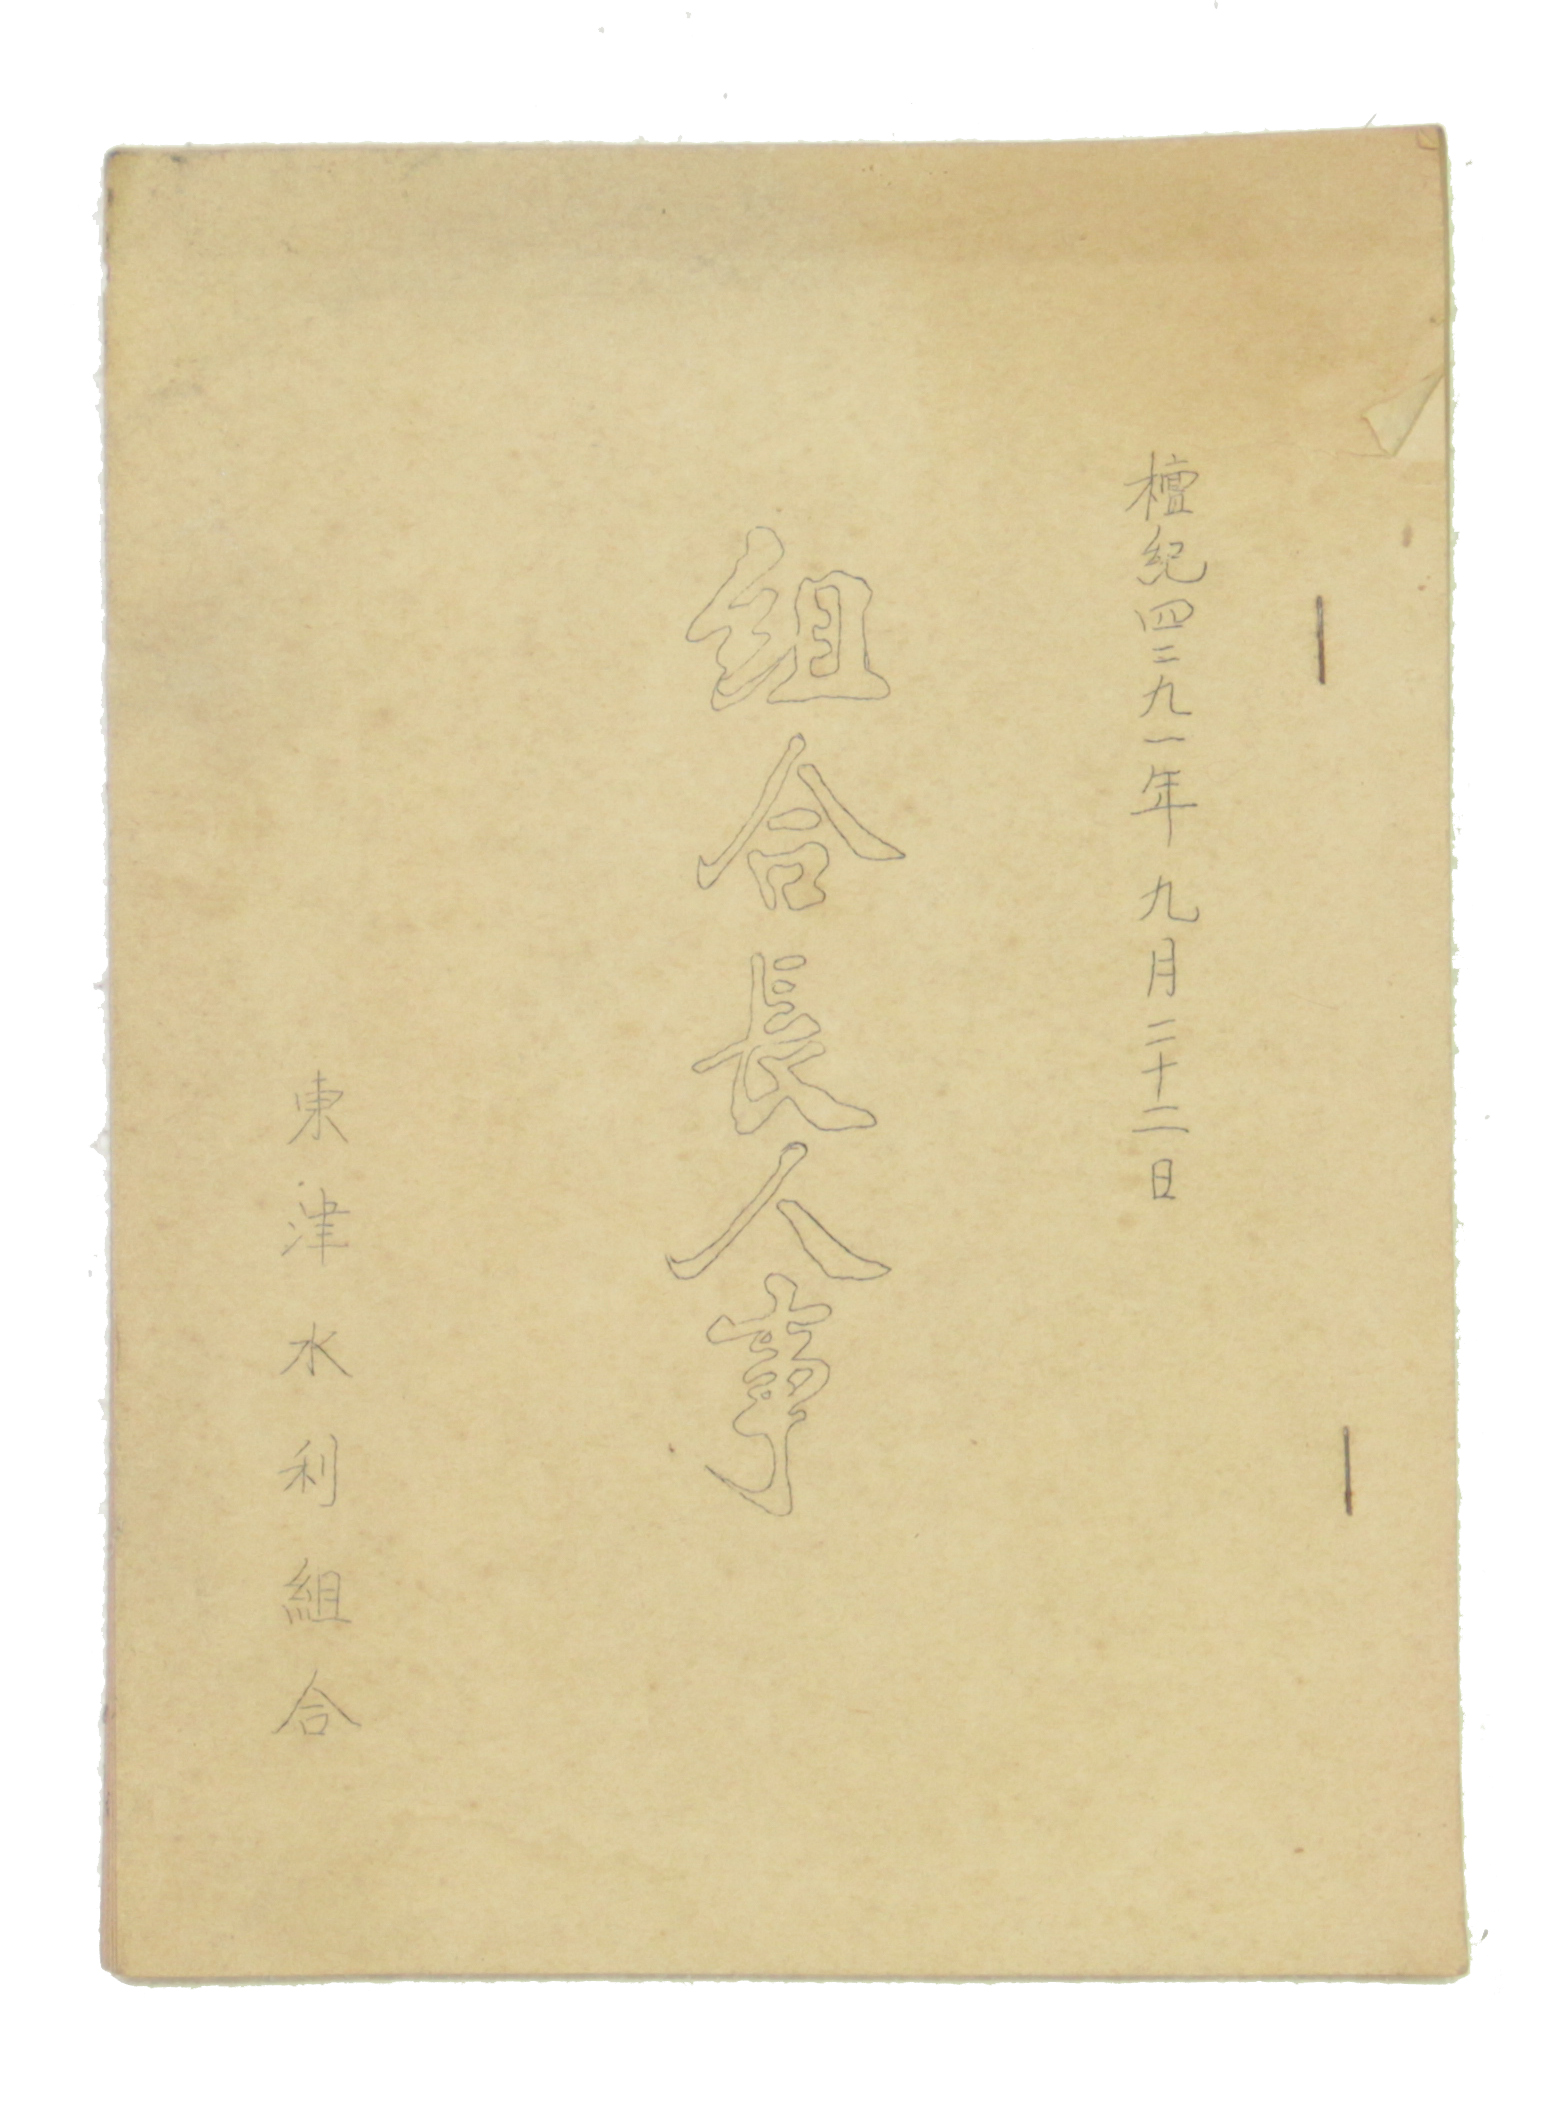 檀紀四二九一年 九月二十二日
組合長人事
東津水利組合